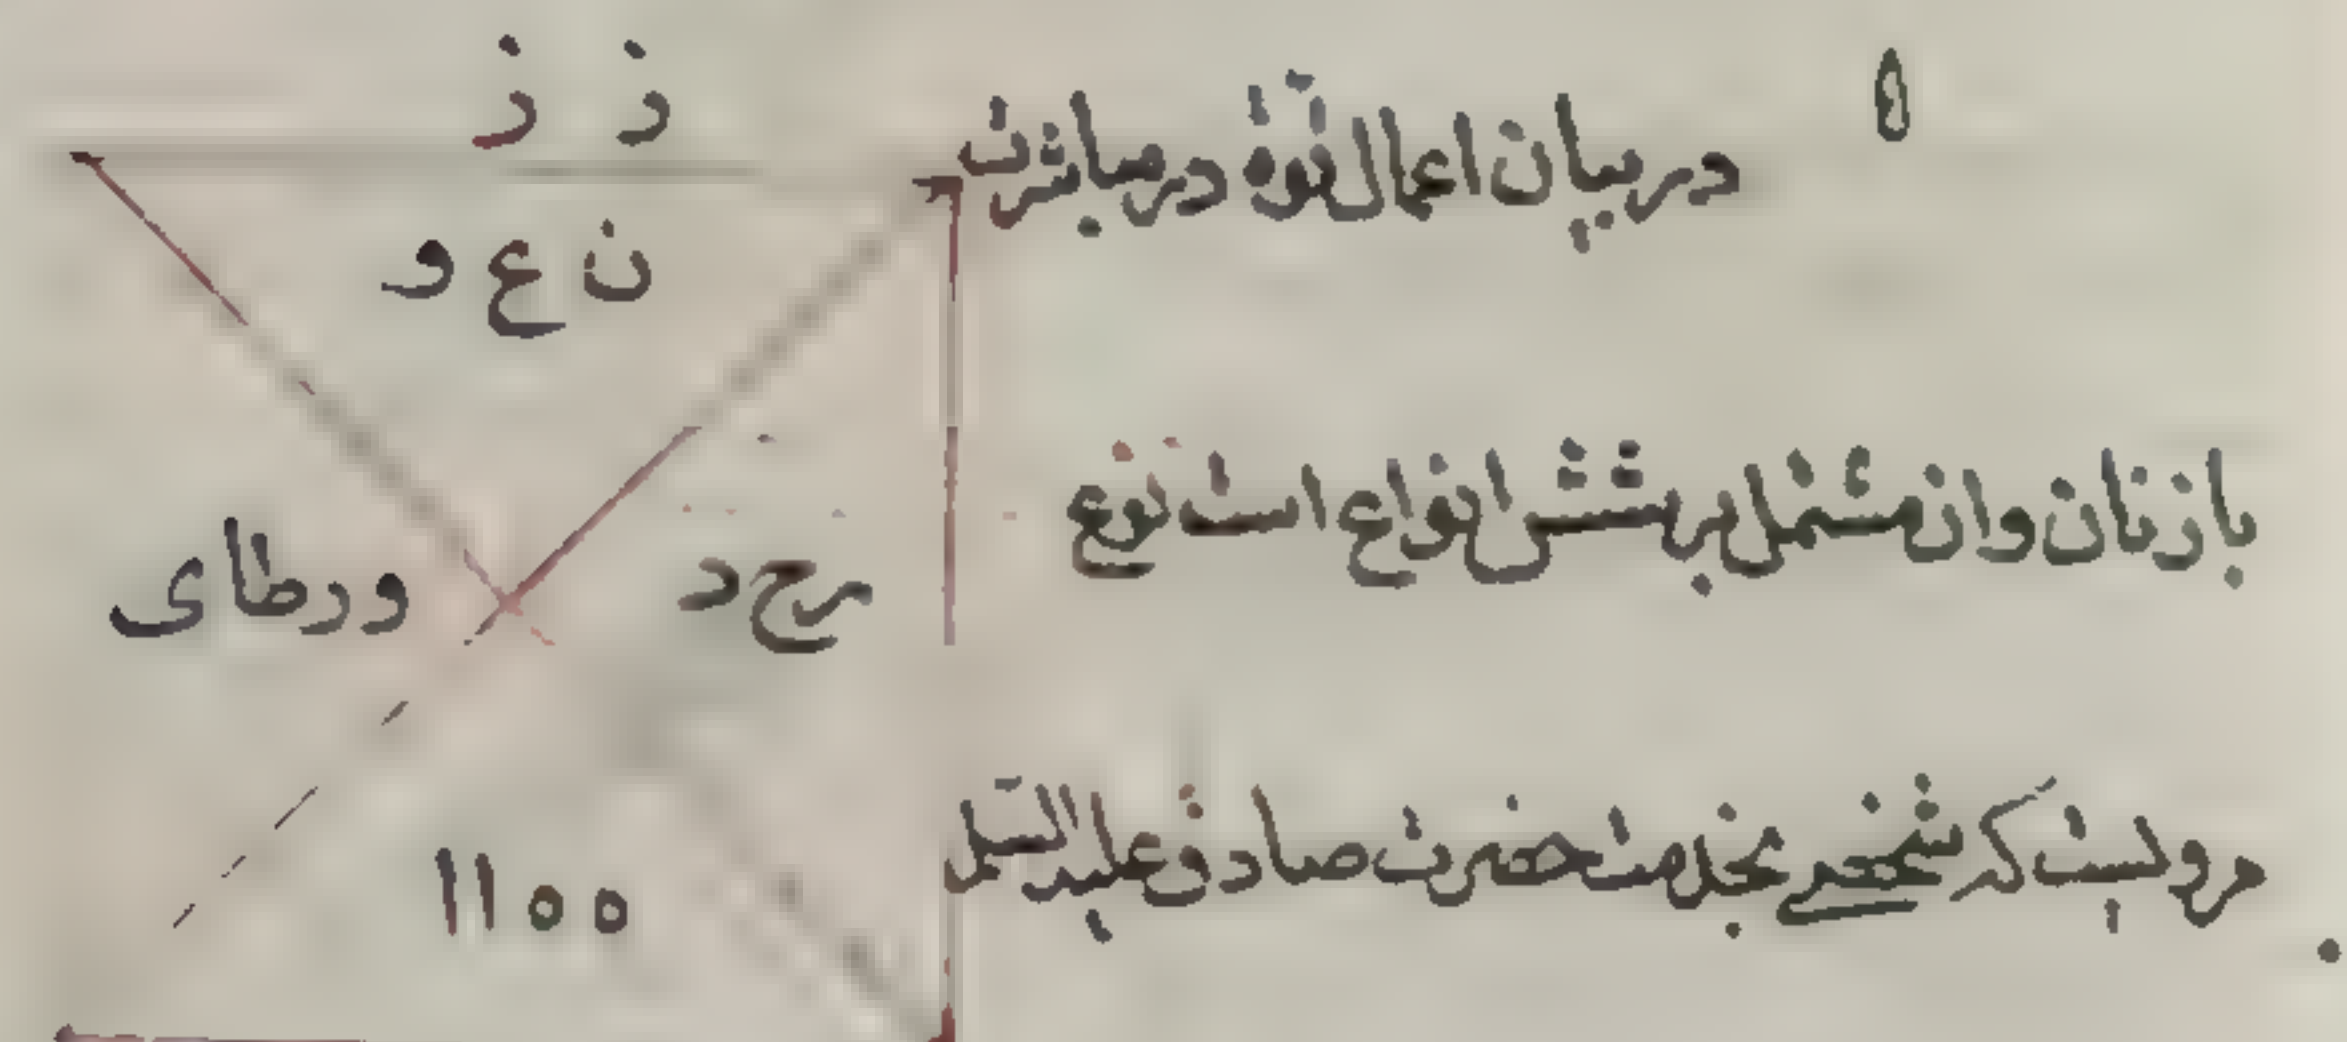 در بیان اعمال قوة در مباشرت
با زنان وان مشتمل بر شش انواع است نوع
مرویست که شخصی بخدمت حضرت صادق علیه السلم
ز ز
ن ع و
و ر ط ا ی
١١٥٥